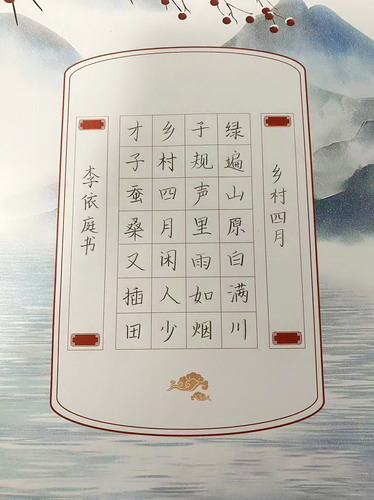 乡村四月
绿遍山原白满川
子规声里雨如烟
乡村四月闲人少
才子蚕桑又插田
李依庭书